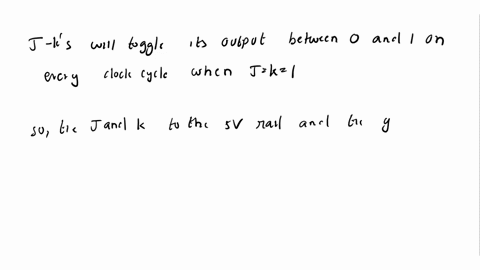 J-k's will toggle its output between 0 and 1 on
every clock cycle when J=k=1
so, tie J and k to the 5V rail and tie y